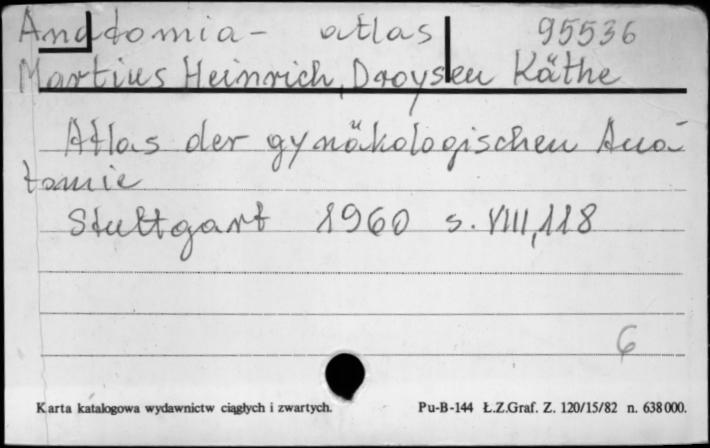 Anatomia - atlas 95536
Martius Heinrich, Droysen Käthe
Atlas der gynäkologischen Ana-
tomie
Stuttgart 1960 s. VIII, 118
6
Karta katalogowa wydawnictw ciągłych i zwartych. Pu-B-144 Ł.Z.Graf. Z. 120/15/82 n. 638000.